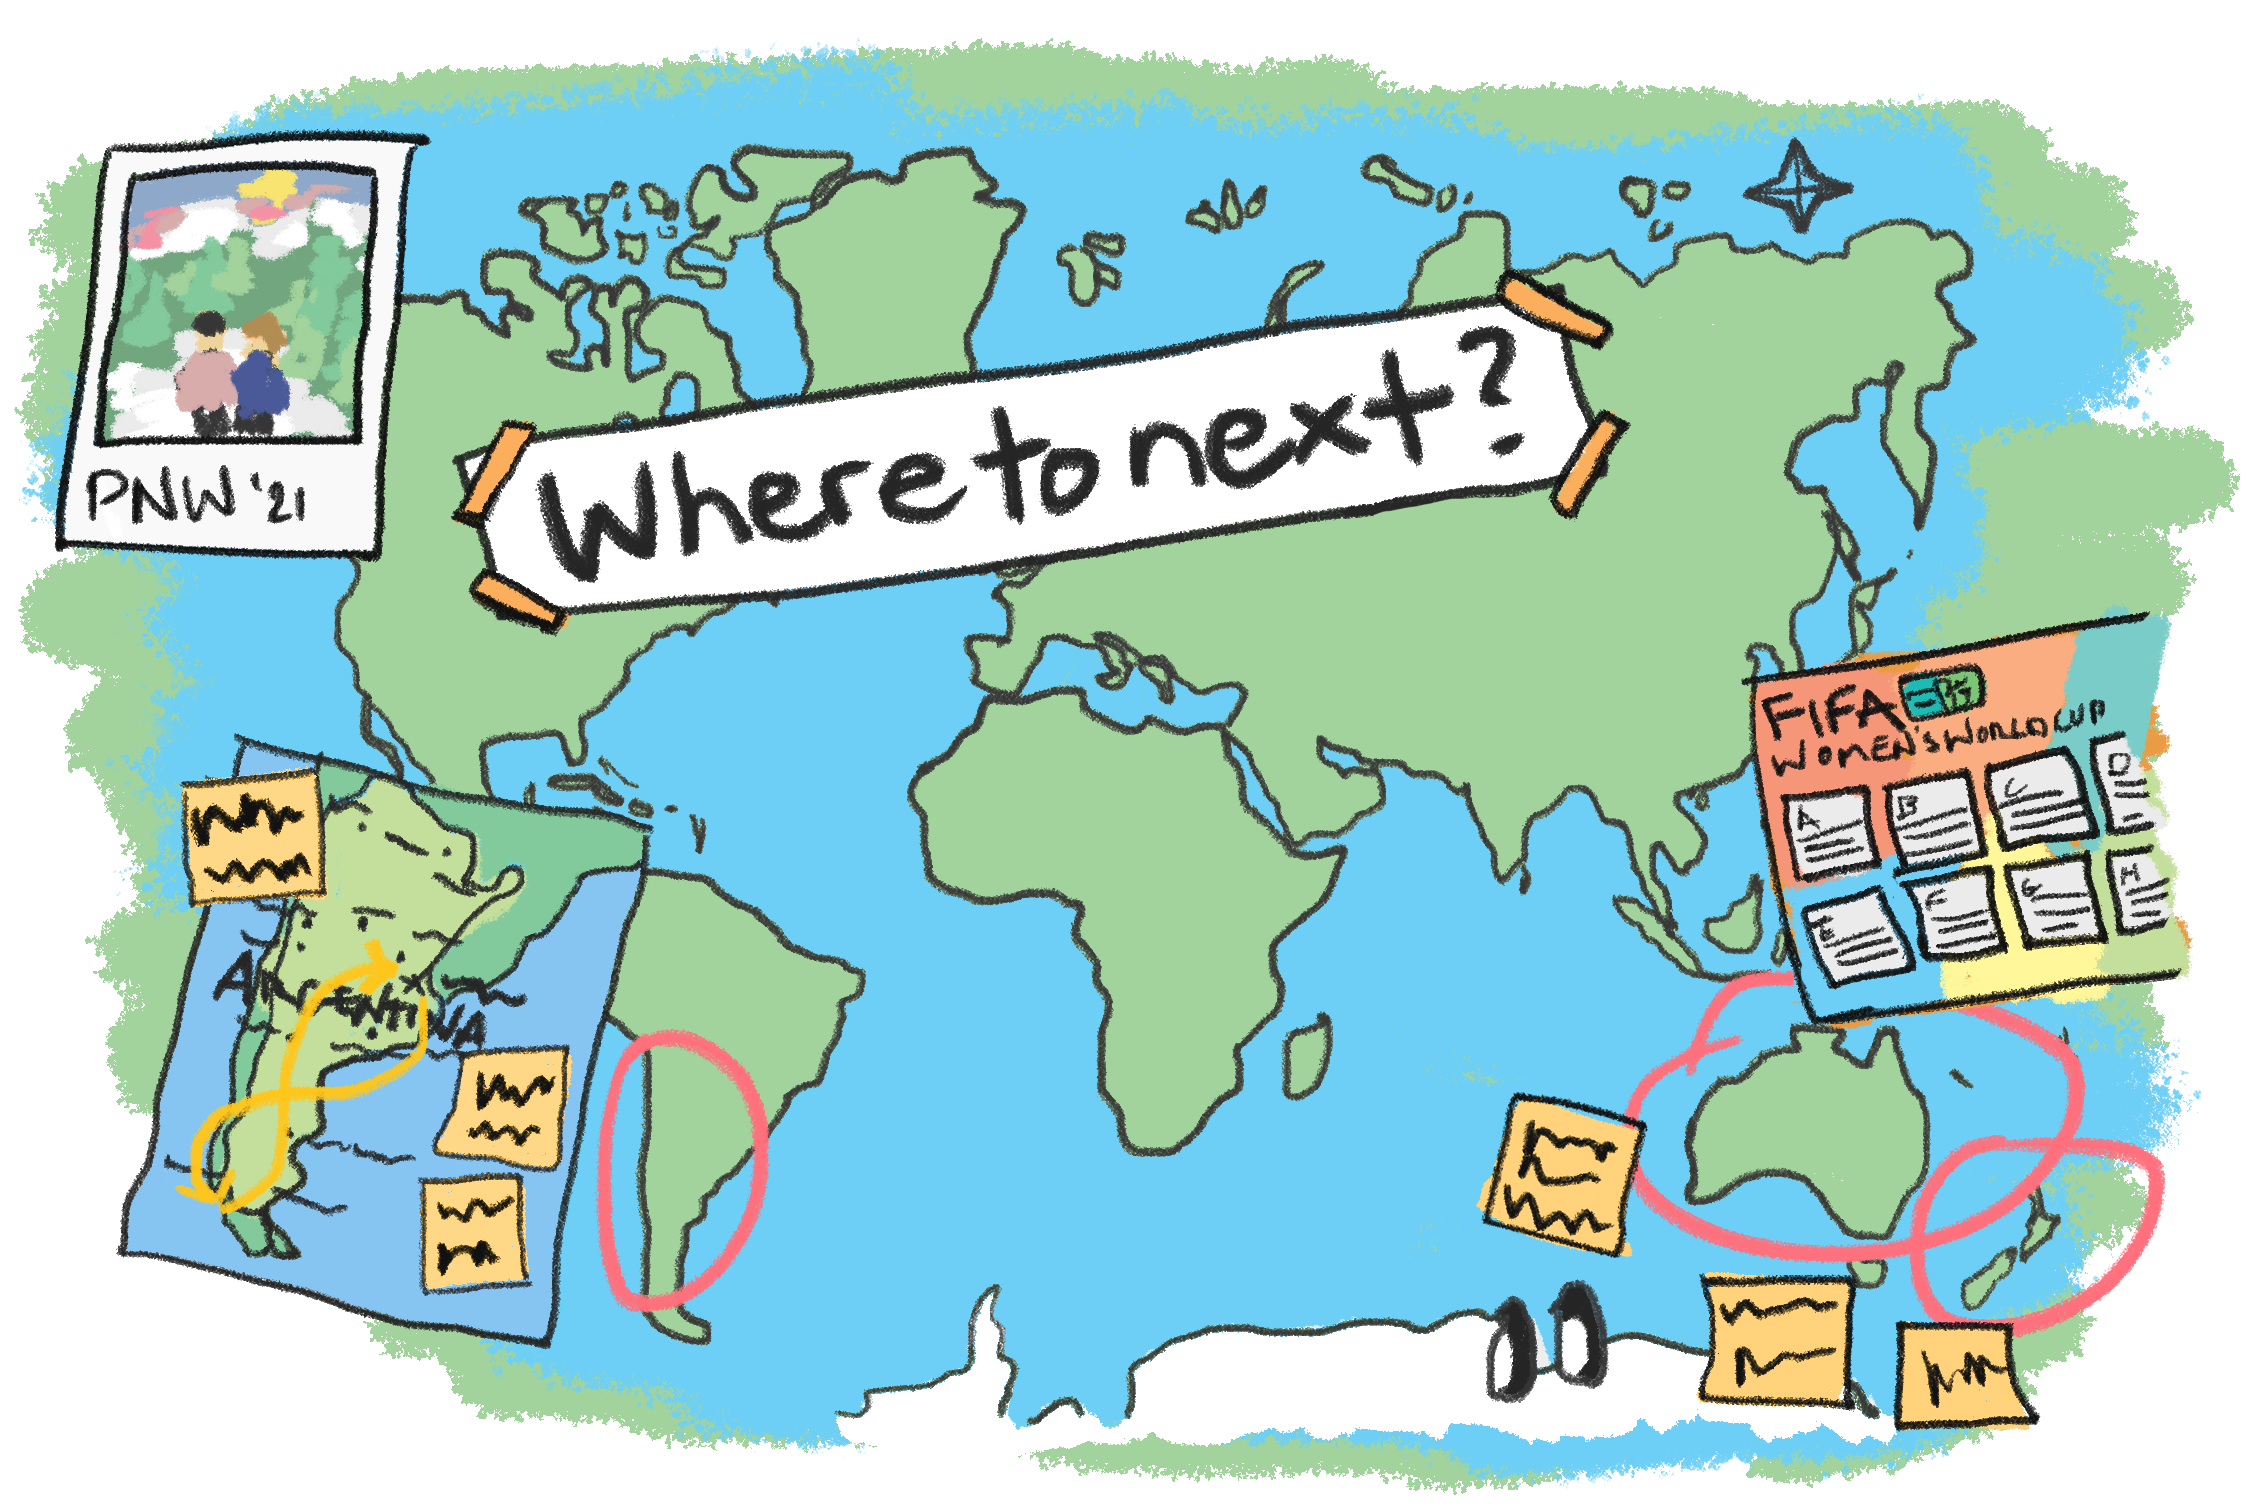 Where to next?
PNW '21
ARGENTINA
FIFA
WOMEN'S WORLD CUP
A
B
C
D
E
F
G
H